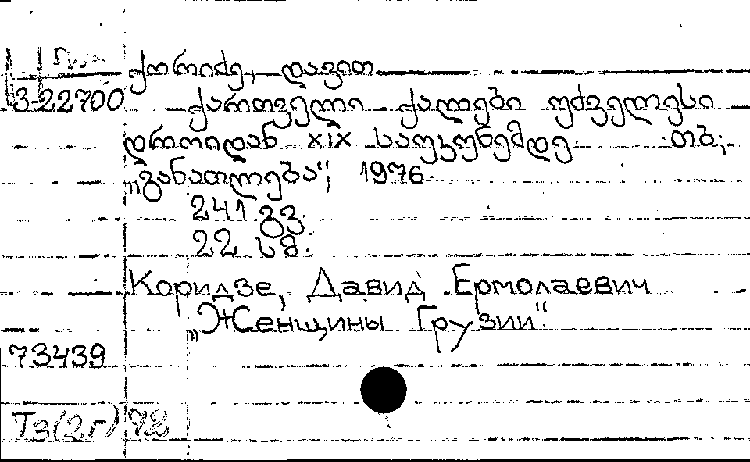 ქორიძე, დავით
3-22700 ქართველი ქალები უძველესი
დროიდან XIX საუკუნემდე თბ.,
„განათლება“, 1976
241 გვ.
22 სმ.
Коридзе, Давид Ермолаевич
„Женщины Грузии“
73439
Т3(2Г) 92